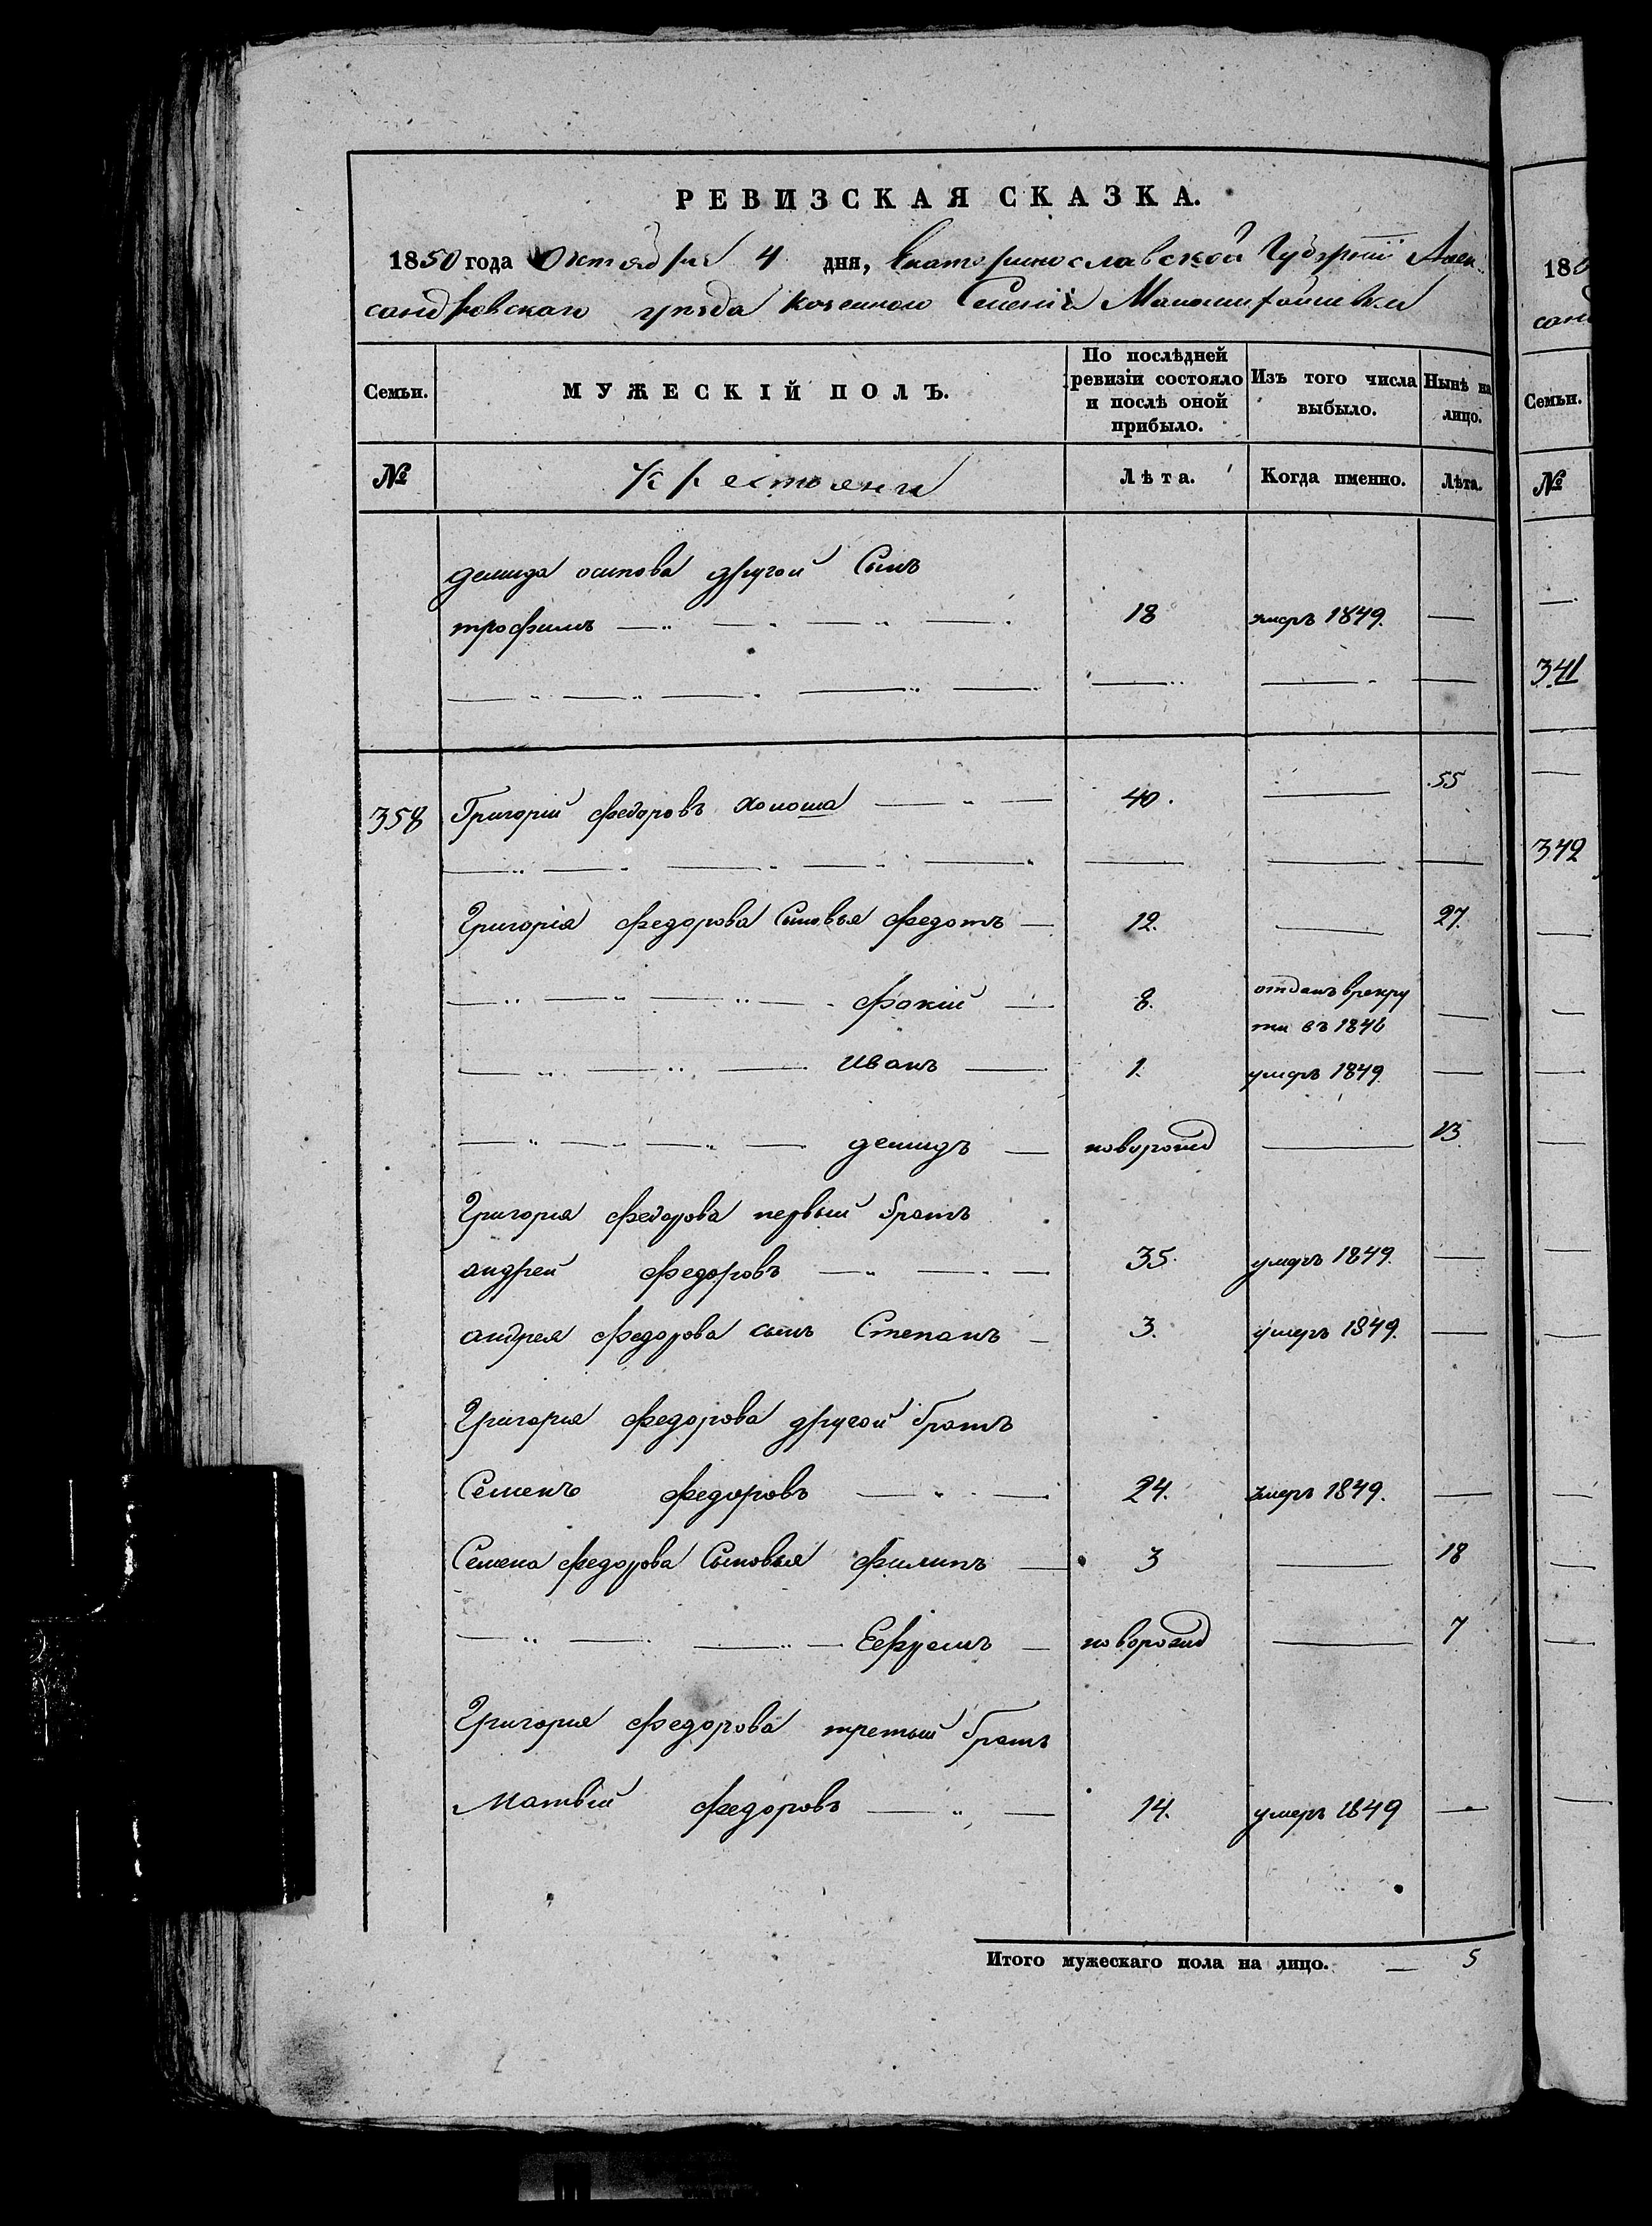 РЕВИЗСКАЯ СКАЗКА.
1850 года Октября 4 дня, Екатеринославской Губернии Алек
сандровскаго уезда казенного Селения
Семьи. МУЖЕСКІЙ ПОЛЪ. По послѣдней ревизіи состояло и послѣ оной прибыло. Изъ того числа выбыло. Нынѣ на лицо.
№ Крестьяни Лѣта. Когда именно. Лѣта.
демида осипова другой Сынъ
трофимъ 18 умеръ 1849. —
358 Григорій федоровъ холоша 40. — 55
Григорія федорова Сыновья федотъ — 12. — 27.
фокій — 8. отданъ врекру
ти въ 1846 —
иванъ — 1. умеръ 1849. —
демидъ — новорожд — 13
Григория федорова первый братъ
андрей федоровъ — 35. умеръ 1849. —
андрея федорова сынъ Степанъ — 3. умеръ 1849. —
Григория федорова другой братъ
Семенъ федоровъ — 24. умеръ 1849. —
Семена федорова Сыновья филипъ — 3 — 18
Ефремъ — новорожд — 7
Григория федорова третьий братъ
Матвій федоровъ — 14. умеръ 1849 —
Итого мужескаго пола на лицо. — 5
180
сан
Семьи.
№
341
342